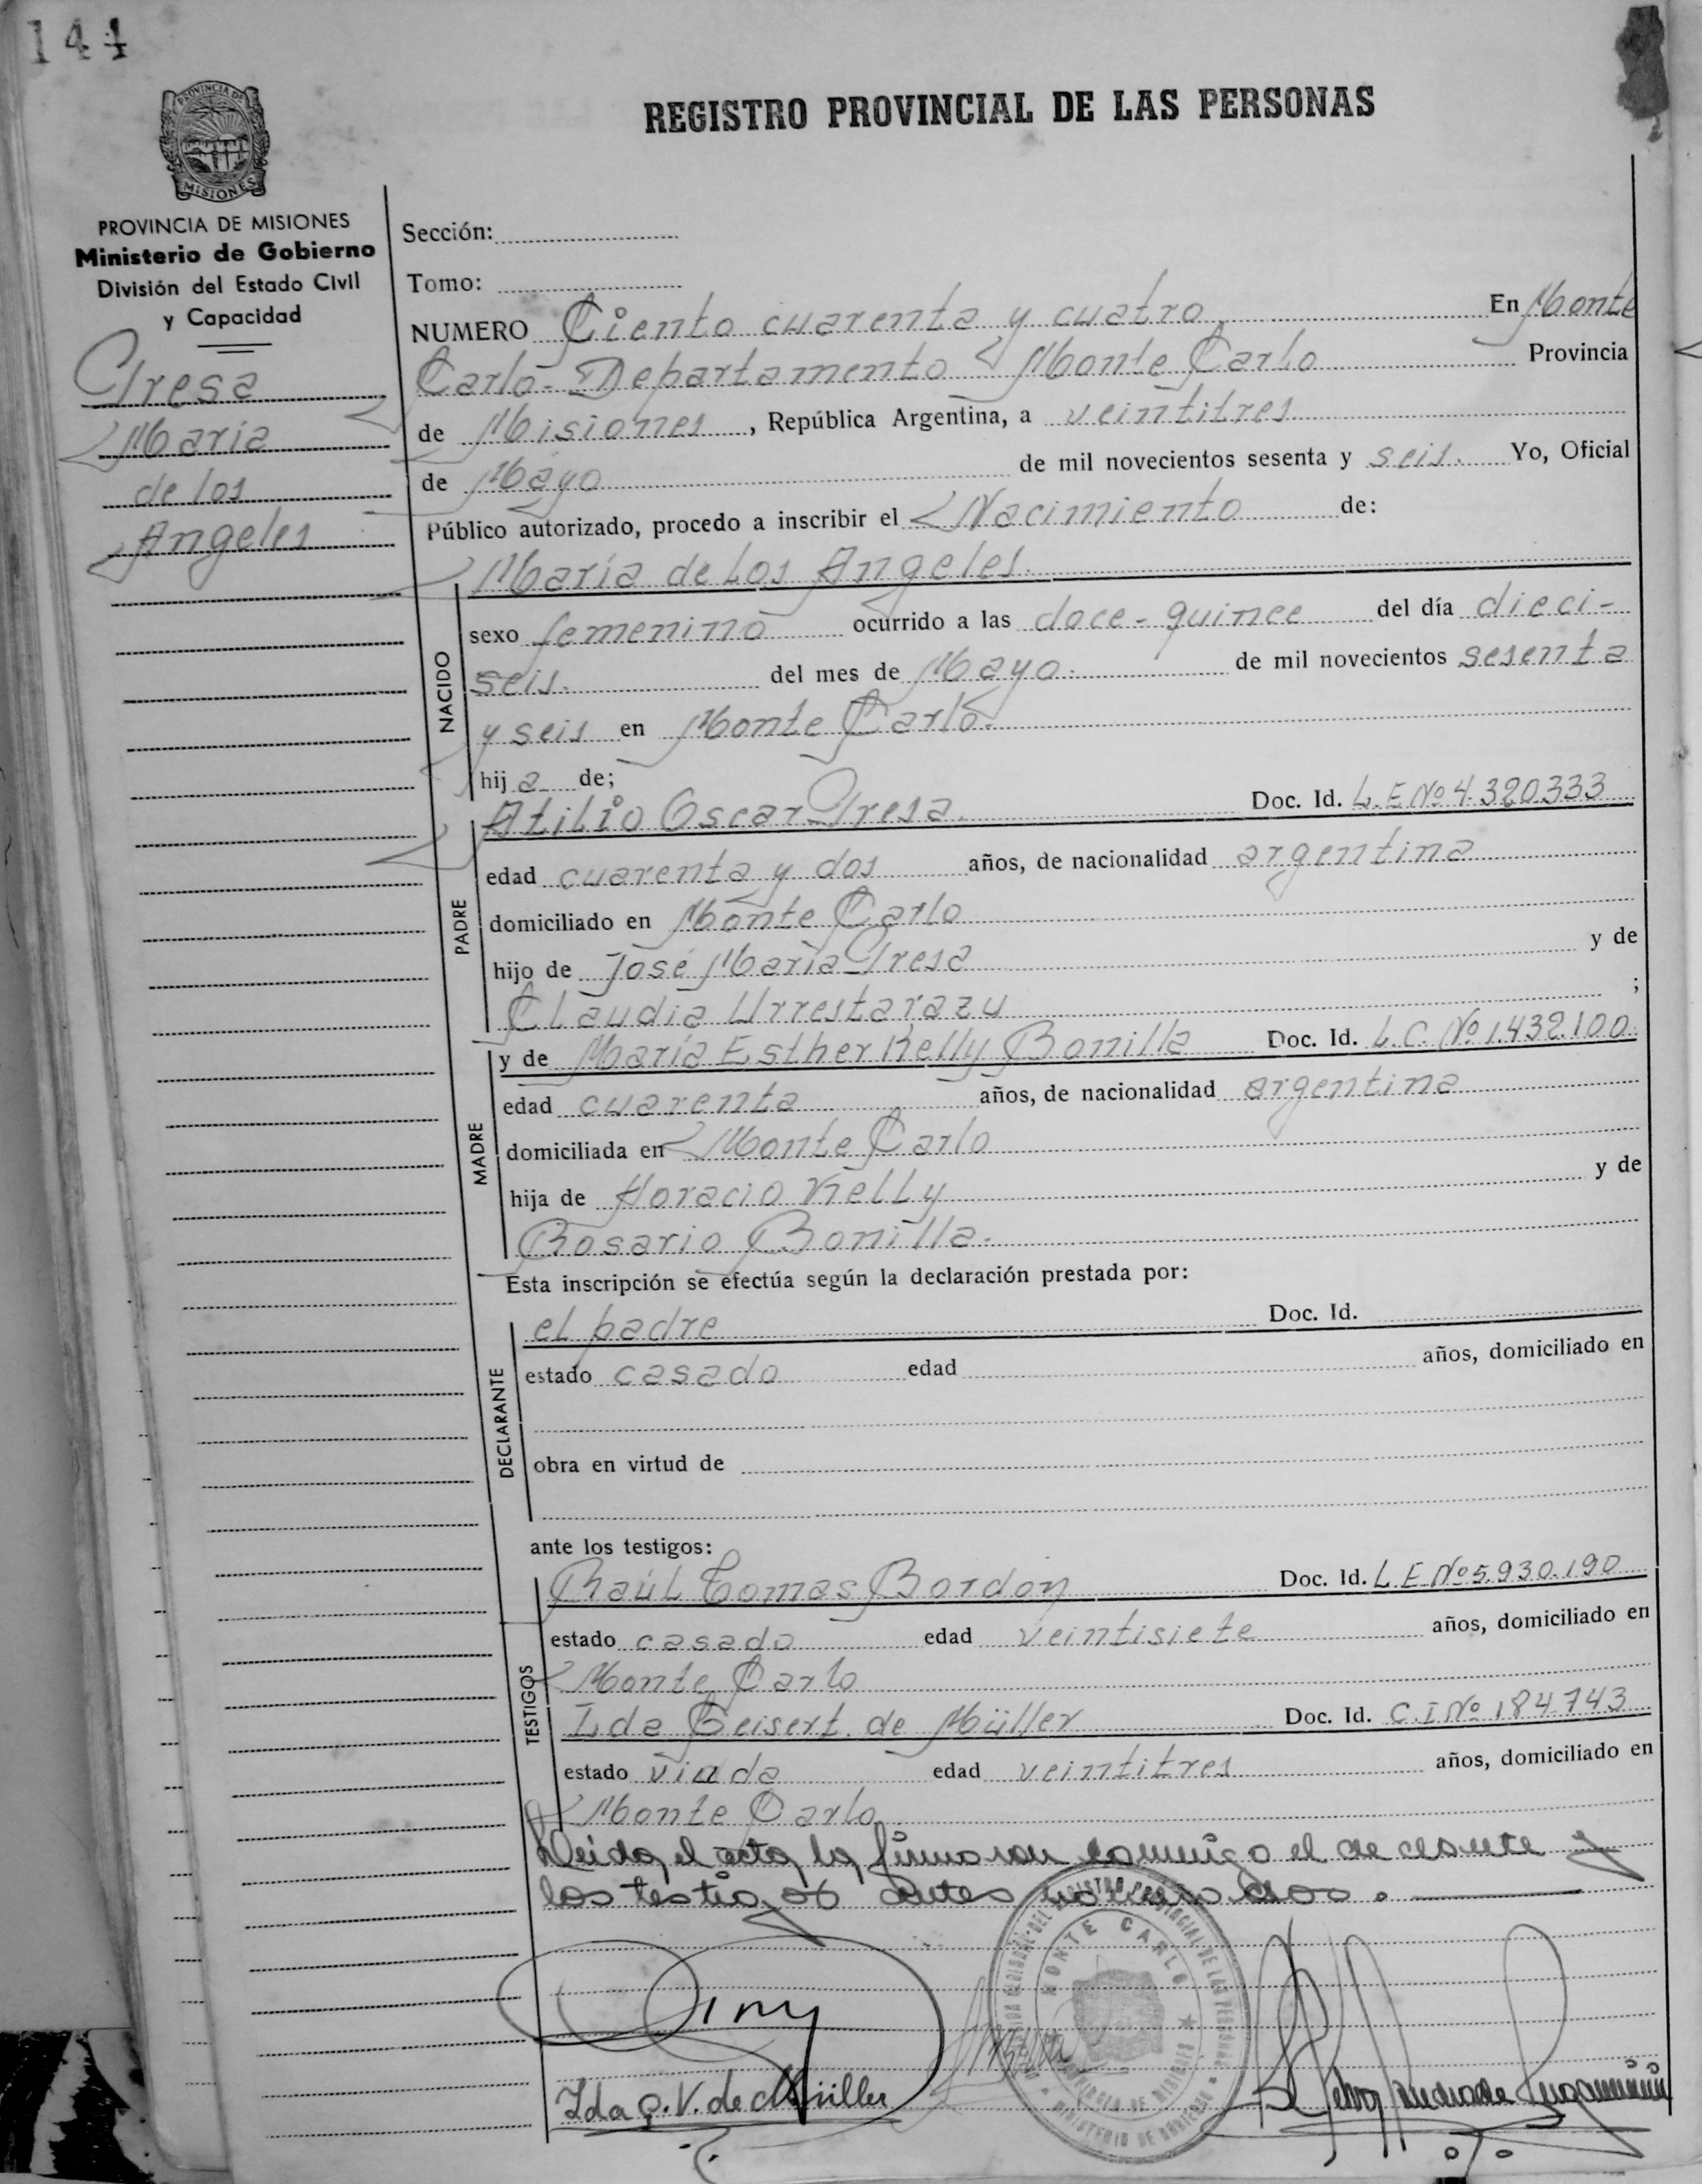 144
PROVINCIA DE
MISIONES
REGISTRO PROVINCIAL DE LAS PERSONAS
PROVINCIA DE MISIONES
Ministerio de Gobierno
División del Estado Civil
y Capacidad
Tresa
María
de los
Angeles
Sección:
Tomo:
NUMERO Ciento cuarenta y cuatro En Monte
Carlo - Departamento Monte Carlo Provincia
de Misiones, República Argentina, a veintitres
de Mayo de mil novecientos sesenta y seis. Yo, Oficial
Público autorizado, procedo a inscribir el Nacimiento de:
María de Los Angeles.
NACIDO
sexo femenino ocurrido a las doce - quince del día dieci-
seis. del mes de Mayo. de mil novecientos sesenta
y seis en Monte Carlo.
hija de;
Atilio Oscar Tresa. Doc. Id. L. E Nº 4.320333
PADRE
edad cuarenta y dos años, de nacionalidad argentina
domiciliado en Monte Carlo
hijo de José María Tresa y de
Claudia Urrestarazu ;
y de María Esther Kelly Bonilla Doc. Id. L. C. Nº 1.432.100.
MADRE
edad cuarenta años, de nacionalidad argentina
domiciliada en Monte Carlo
hija de Horacio Kelly y de
Rosario Bonilla.
Esta inscripción se efectúa según la declaración prestada por:
el padre Doc. Id.
DECLARANTE
estado casado edad años, domiciliado en
obra en virtud de
ante los testigos:
Raúl Tomas Bordon Doc. Id. L E Nº 5.930.190
TESTIGOS
estado casado edad veintisiete años, domiciliado en
Monte Carlo
Ida Geisert. de Müller Doc. Id. C. I Nº 184.743
estado viuda edad veintitres años, domiciliado en
Monte Carlo
Leida el acta la firmaron conmigo el
los testigos antes
MONTE CARLO
PROVINCIA DE MISIONES
MINISTERIO DE GOBIERNO
Ida G. V. de Müller